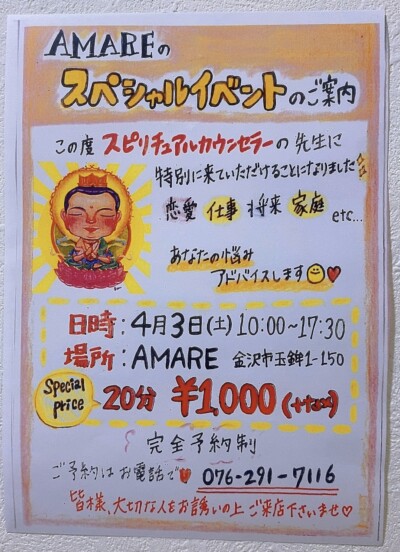 AMAREの
スペシャルイベントのご案内
この度 スピリチュアルカウンセラーの 先生に
特別に来ていただけることになりました
恋愛 仕事 将来 家庭 etc...
あなたの悩み
アドバイスします
日時：4月3日(土) 10:00〜17:30
場所：AMARE 金沢市玉鉾1-150
Special price 20分 ¥1,000
完全予約制
ご予約はお電話で 076-291-7116
皆様、大切な人をお誘いの上 ご来店下さいませ♡